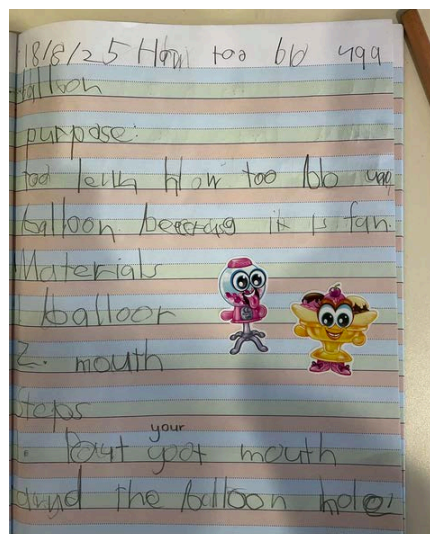 18/8/25 How too blo uqq
balloon
purpose:
too lern How too blo uqq
balloon becasug it is fan.
Materials
balloon
2. mouth
Steps
your
. Pout yoot mouth
arnd the balloon hole